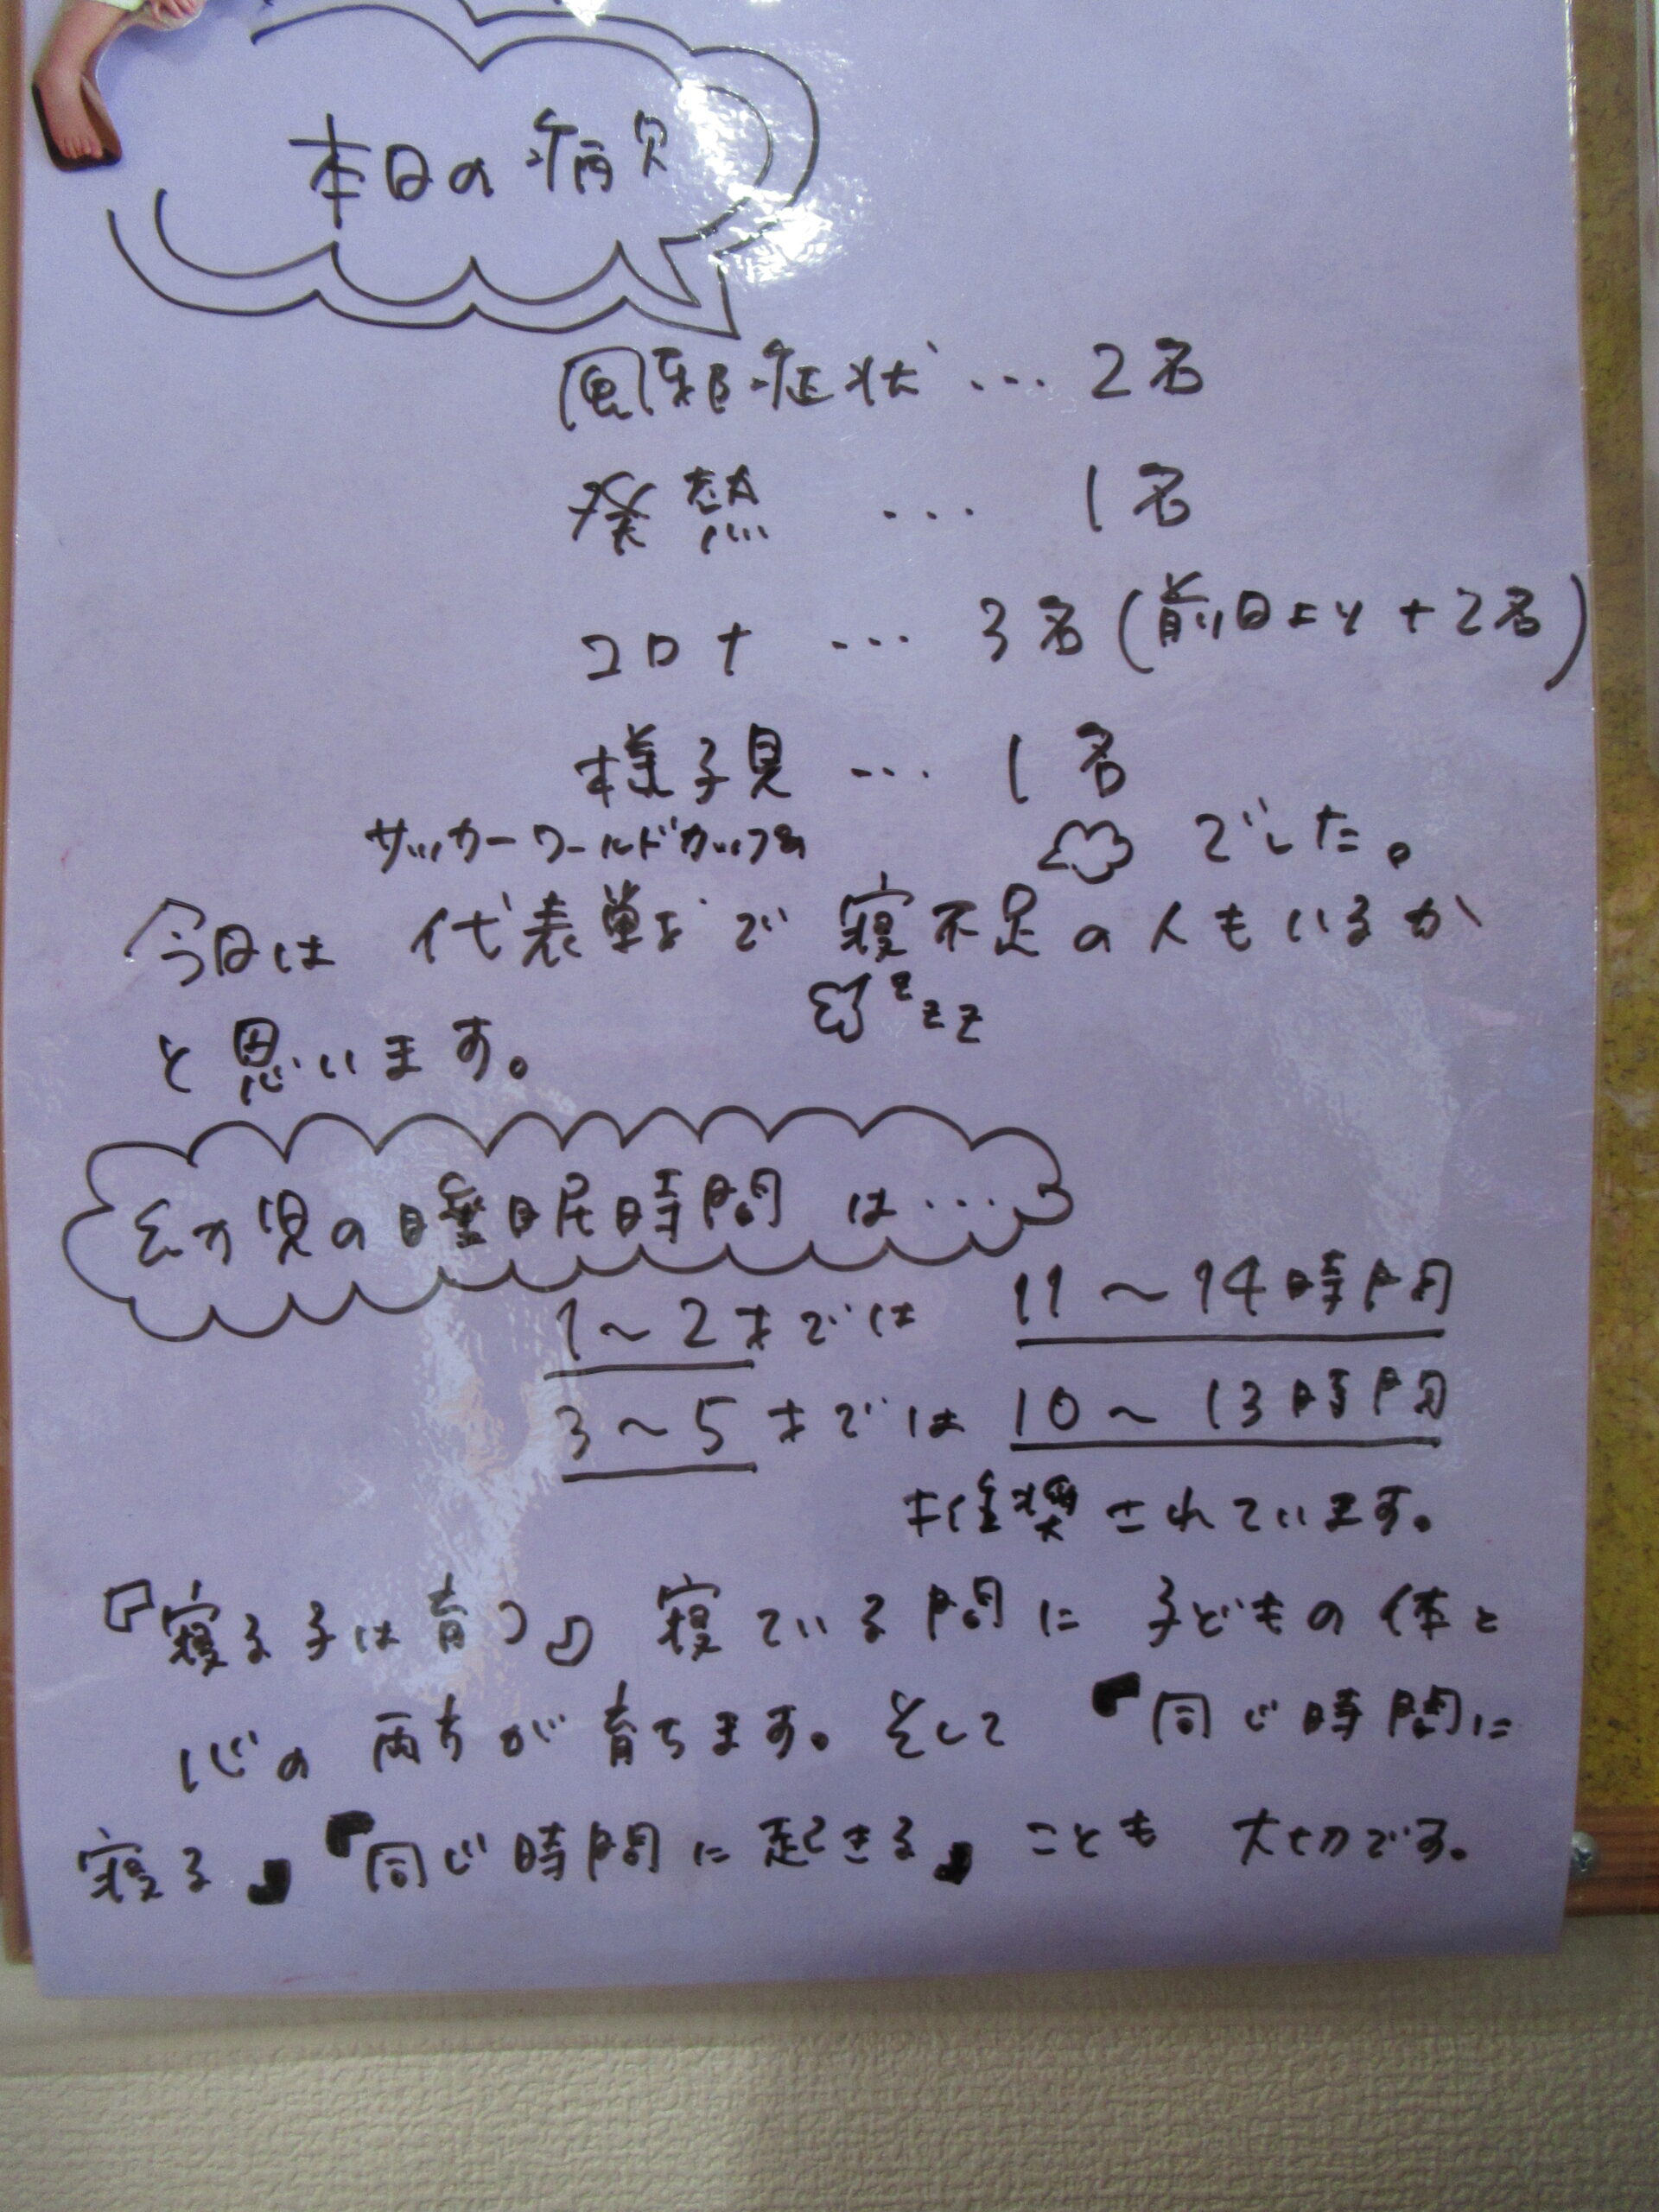 本日の病欠
風邪症状 … 2名
発熱 … 1名
コロナ … 3名(前日より+2名)
様子見 … 1名
でした。
サッカーワールドカップの
今日は 代表戦で 寝不足の人もいるか
zzz
と思います。
幼児の睡眠時間は…
1〜2才では 11〜14時間
3〜5才では 10〜13時間
推奨されています。
『寝る子は育つ』 寝ている間に 子どもの体と
心の両方が育ちます。そして 『同じ時間に
寝る』『同じ時間に起きる』ことも 大切です。